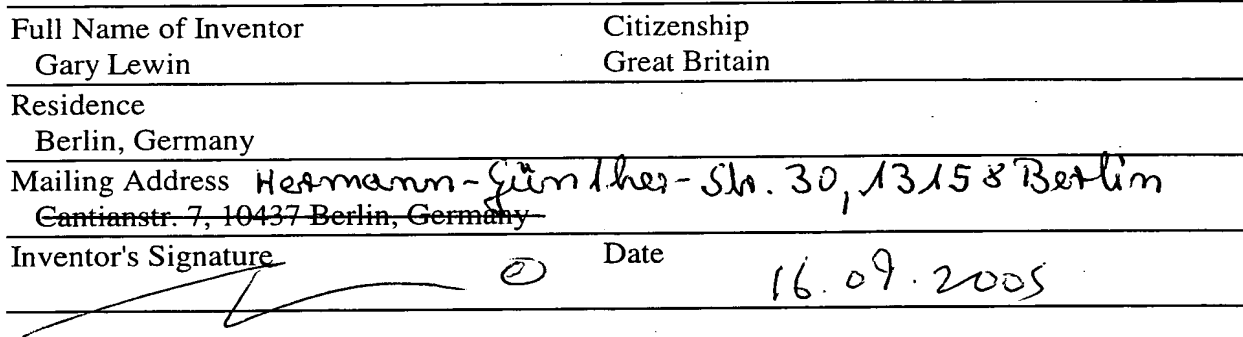 Full Name of Inventor Citizenship
Gary Lewin Great Britain
Residence
Berlin, Germany
Mailing Address Hermann-Günther-Str. 30, 13158 Berlin
Cantianstr. 7, 10437 Berlin, Germany
Inventor's Signature Date 16.09.2005